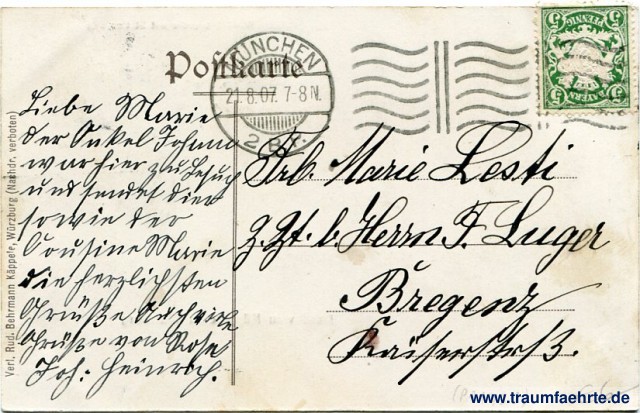 Postkarte
MÜNCHEN
21.8.07. 7-8 N.
2 B.P.
PFENNIG
BAYERN
5 5
Liebe Marie
der Onkel Johann
war hier zu Besuch
und sendet dir
sowie der
Cousine Marie
die herzlichsten
Grüße Auch viele
Grüße von Rosa
Joh: Heinrich.
Frl. Marie Lesti
z. Zt. b. Herrn F. Luger
Bregenz
Kaiserstrß.
Verl. Rud. Behrmann Käppele, Würzburg (Nachdr. verboten)
www.traumfaehrte.de